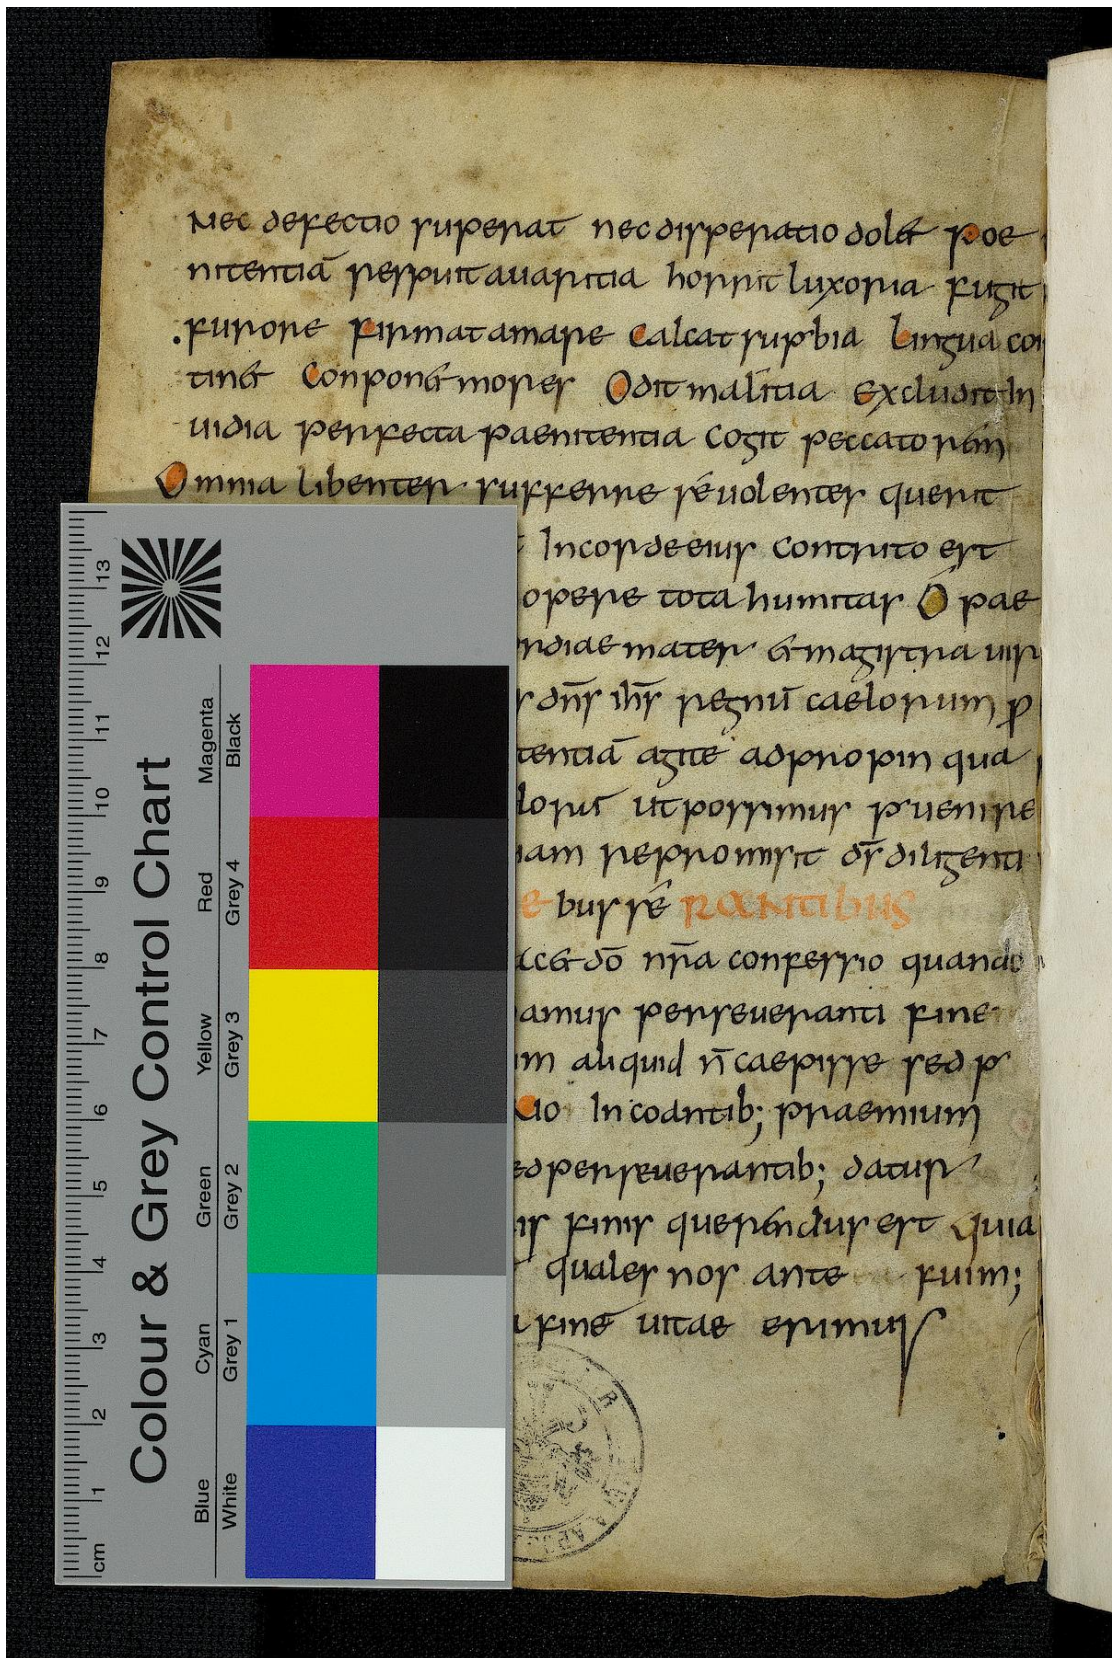 Nec defectio superat nec disperatio dol& poe
nitentiā respuit auaritia horrit luxoria fugit
furore firmat amare Calcat sup̄bia Lingua con
tin& Conpon& mores Odit malitia excludit In
uidia perfecta paenitentia cogit peccatorem
Omnia libenter sufferre sé uolenter querit
In corde eius contrito est
opere tota humitas Ó pae
ordiae mater & magistra uir
dn̄s ih̄s regnū caelorum ꝓ
tentiā agite adpropinqua
lorū ut possimus p̄uenire
iam repromisit d̄s diligenti
e bus sé RANTIBUS
d̄o nr̄a confessio quando
amur perseueranti fine
m aliquid n̄ caepisse sed p̄
io Incoantib; praemium
ed perseuerantib; datur
is finis querendus est Quia
quales nos ante fuim;
fine uitae erimus
cm 1 2 3 4 5 6 7 8 9 10 11 12 13
Colour & Grey Control Chart
Blue Cyan Green Yellow Red Magenta
White Grey 1 Grey 2 Grey 3 Grey 4 Black